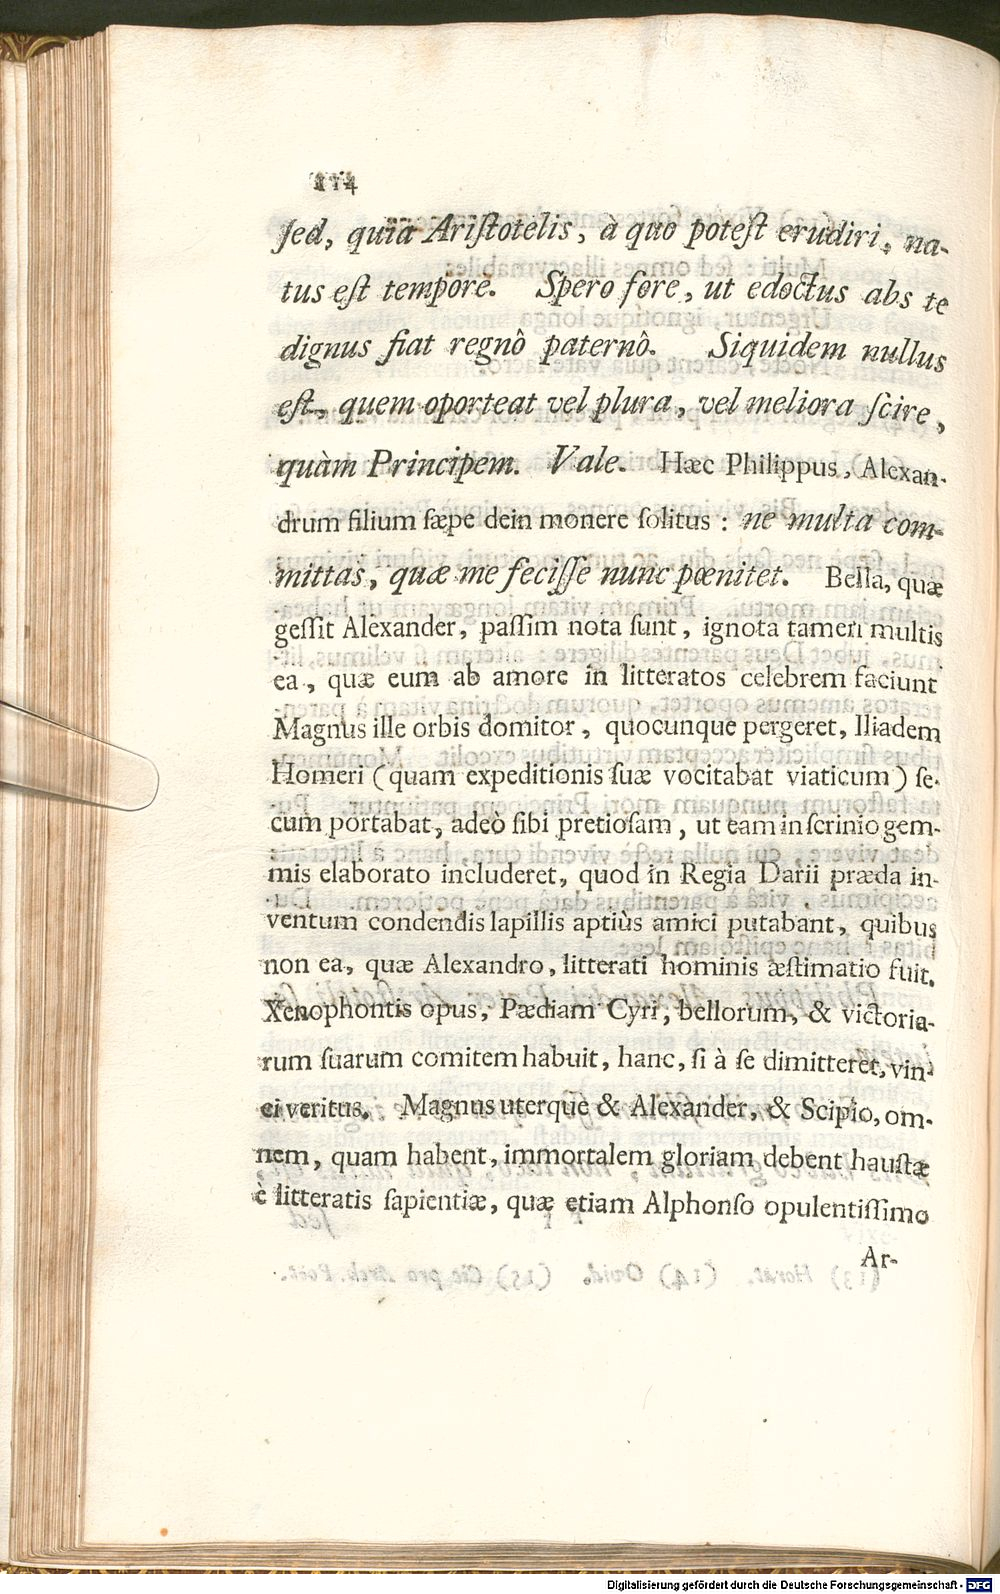 sed, quia Aristotelis, à quo potest erudiri, na-
tus est tempore. Spero fore, ut edoctus abs te
dignus fiat regnô paternô. Siquidem nullus
est, quem oporteat vel plura, vel meliora scire,
quàm Principem. Vale. Hæc Philippus, Alexan-
drum filium sæpe dein monere solitus: ne multa com-
mittas, quæ me fecisse nunc pœnitet. Bella, quæ
gessit Alexander, passim nota sunt, ignota tamen multis
ea, quæ eum ab amore in litteratos celebrem faciunt
Magnus ille orbis domitor, quocunque pergeret, Iliadem
Homeri (quam expeditionis suæ vocitabat viaticum) se-
cum portabat, adeò sibi pretiosam, ut eam in scrinio gem-
mis elaborato includeret, quod in Regia Darii præda in-
ventum condendis lapillis aptiùs amici putabant, quibus
non ea, quæ Alexandro, litterati hominis æstimatio fuit.
Xenophontis opus, Pædiam Cyri, bellorum, & victoria-
rum suarum comitem habuit, hanc, si à se dimitteret, vin-
ci veritus. Magnus uterque & Alexander, & Scipio, om-
nem, quam habent, immortalem gloriam debent haustæ
è litteratis sapientiæ, quæ etiam Alphonso opulentissimo
Ar-
Digitalisierung gefördert durch die Deutsche Forschungsgemeinschaft - DFG